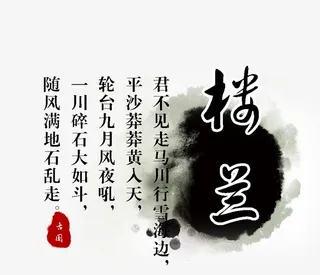 楼兰
君不见走马川行雪海边，
平沙莽莽黄入天，
轮台九月风夜吼，
一川碎石大如斗，
随风满地石乱走。
古国